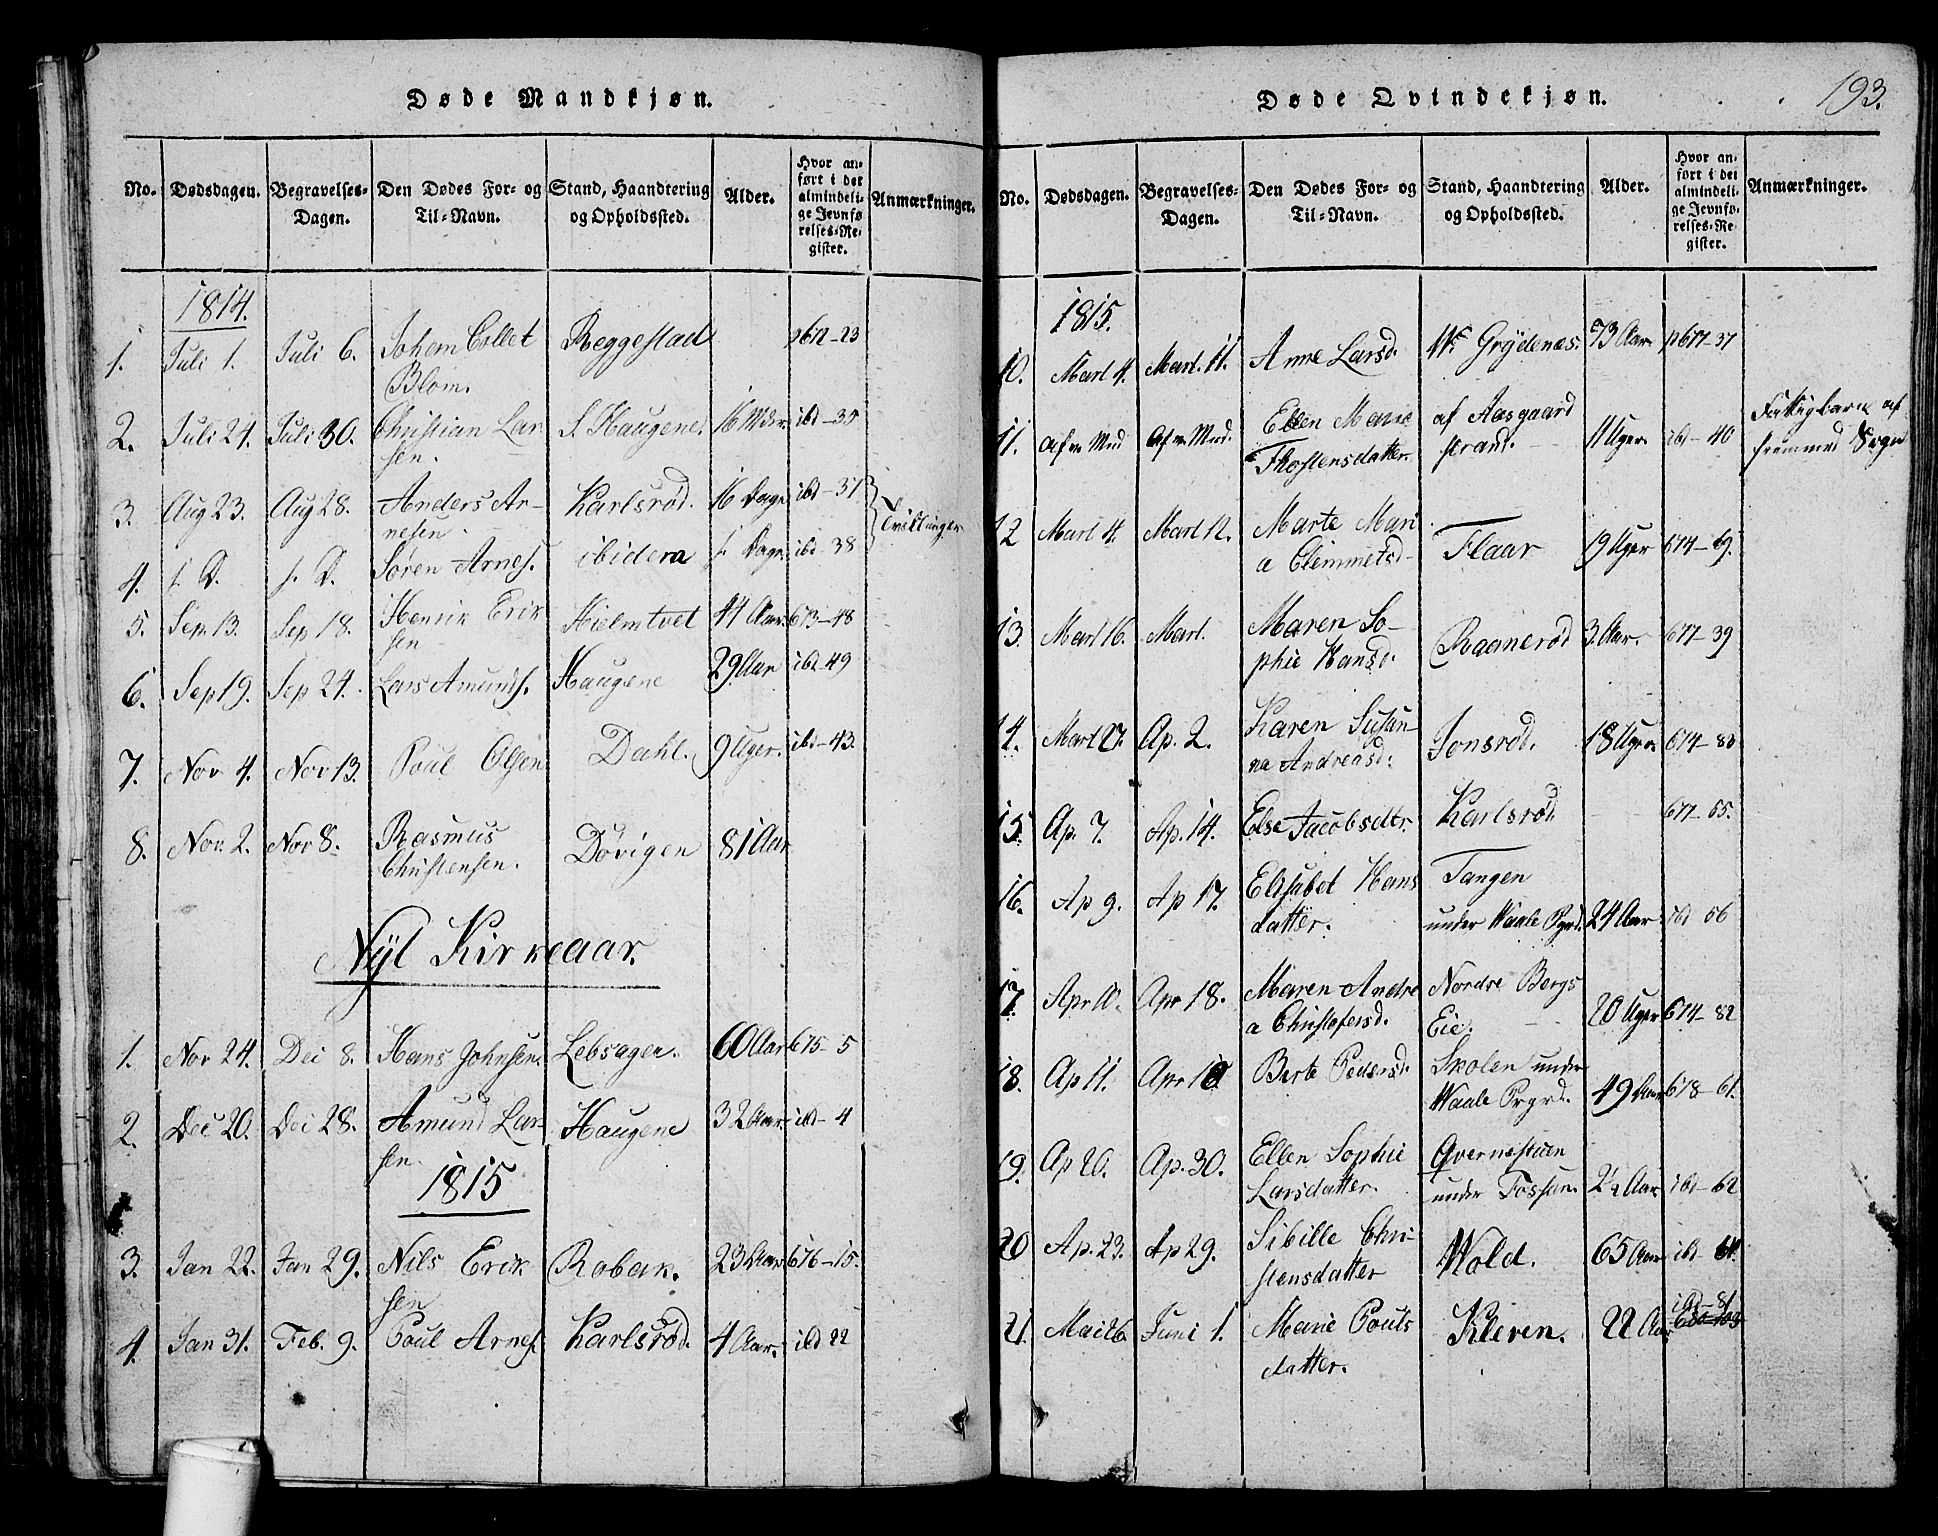 Døde Mandkjøn.
No. Dødsdagen. Begravelses-Dagen. Den Dødes For- og Til-Navn. Stand, Haandtering og Opholdssted. Alder. Hvor anført i det almindelige Jevnførelses-Register. Anmærkninger.
1814.
1. Juli 1. Juli 6. Johem Collet Blom. Reggestad p612-23
2. Juli 24. Juli 30. Christian Larsen. S. Haugene. 16 ibd-35
3. Aug 23. Aug 28. Anders Arnesen. Karlsrød. 16 Dage ibd-37 Tvillinger
4. s. D. s. D. Søren Arnes. ibidem s. Dage ibd 38
5. Sep. 13. Sep 18. Henrik Eriksen Hielmtvet 44 Aar 673-48
6. Sep 19. Sep 24. Lars Amunds. Haugene 29 Aar ibd-49
7. Nov. 4. Nov 13. Poul Olsen Dahl. 9 Uger. ibd-43.
8. Nov. 2. Nov 8. Rasmus Christensen. Døvigen 81 Aar
Nyt Kirkeaar.
1. Nov 24. Dec 8. Hans Johnsen. Lebsager. 60 Aar 675-5
2. Dec 20. Dec 28. Amund Larsen. Haugene 32 Aar. ibd-4
1815
3. Jan 22. Jan 29. Nils Eriksen Robak. 23 Aar 676-15.
4. Jan 31. Feb. 9. Poul Arnes. Karlsrød. 4 Aar. ibd 22
Døde Qvindekjøn. 193.
No. Dødsdagen. Begravelses-Dagen. Den Dødes For- og Til-Navn. Stand, Haandtering og Opholdssted. Alder. Hvor anført i det almindelige Jevnførelses-Register. Anmærkninger.
1815.
10. Mart 4. Mart. 11. Anne Larsd. Grydenes. 73 Aar p617-37
11. Ellen Marie Thostensdatter. af Aasgaardstrand. 11 Uger. ibd-40 Fattigbarn af fremmed Sogn
12 Mart 4. Mart 12. Marte Maria Clemmetsd- Flaar 19 Uger 674-69.
13. Mart 16. Mart. Maren Sophie Hansd. Raanerød 3. Aar. 677-39
14. Mart 27. Ap. 2. Karen Susanna Andreasd. Jonsrød. 18 Uger 674-83
15. Ap. 7. Ap. 14. Else Jacobsdtr. Karlsrød. 677-55.
16. Ap 9. Ap 17. Elisabet Hansdatter. Tangen under Waale Pgrd. 24 Aar ibd 56
17. Apr 10. Apr 18. Maren Andrea Christofersd. Nordre Bergs Eie. 20 Uger 674-82
18. Ap 11. Apr 18 Berte Pedersd. Skolen under Waale Prgrd. 49 Aar 678-61.
19. Ap 20. Ap. 30. Ellen Sophie Larsdatter. Qvernestuen under Fossan. 2½ Aar ibd-62
20 Ap. 23. Ap 29. Sibille Christensdatter Wold. 65 Aar ibd 64.
21. Mai 26. Juni 1. Marie Poulsdatter. Kleven. 22 Aar ibd-81